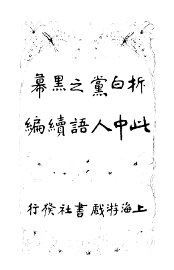 折白黨之黑幕
此中人語續編
上海游戲書社發行